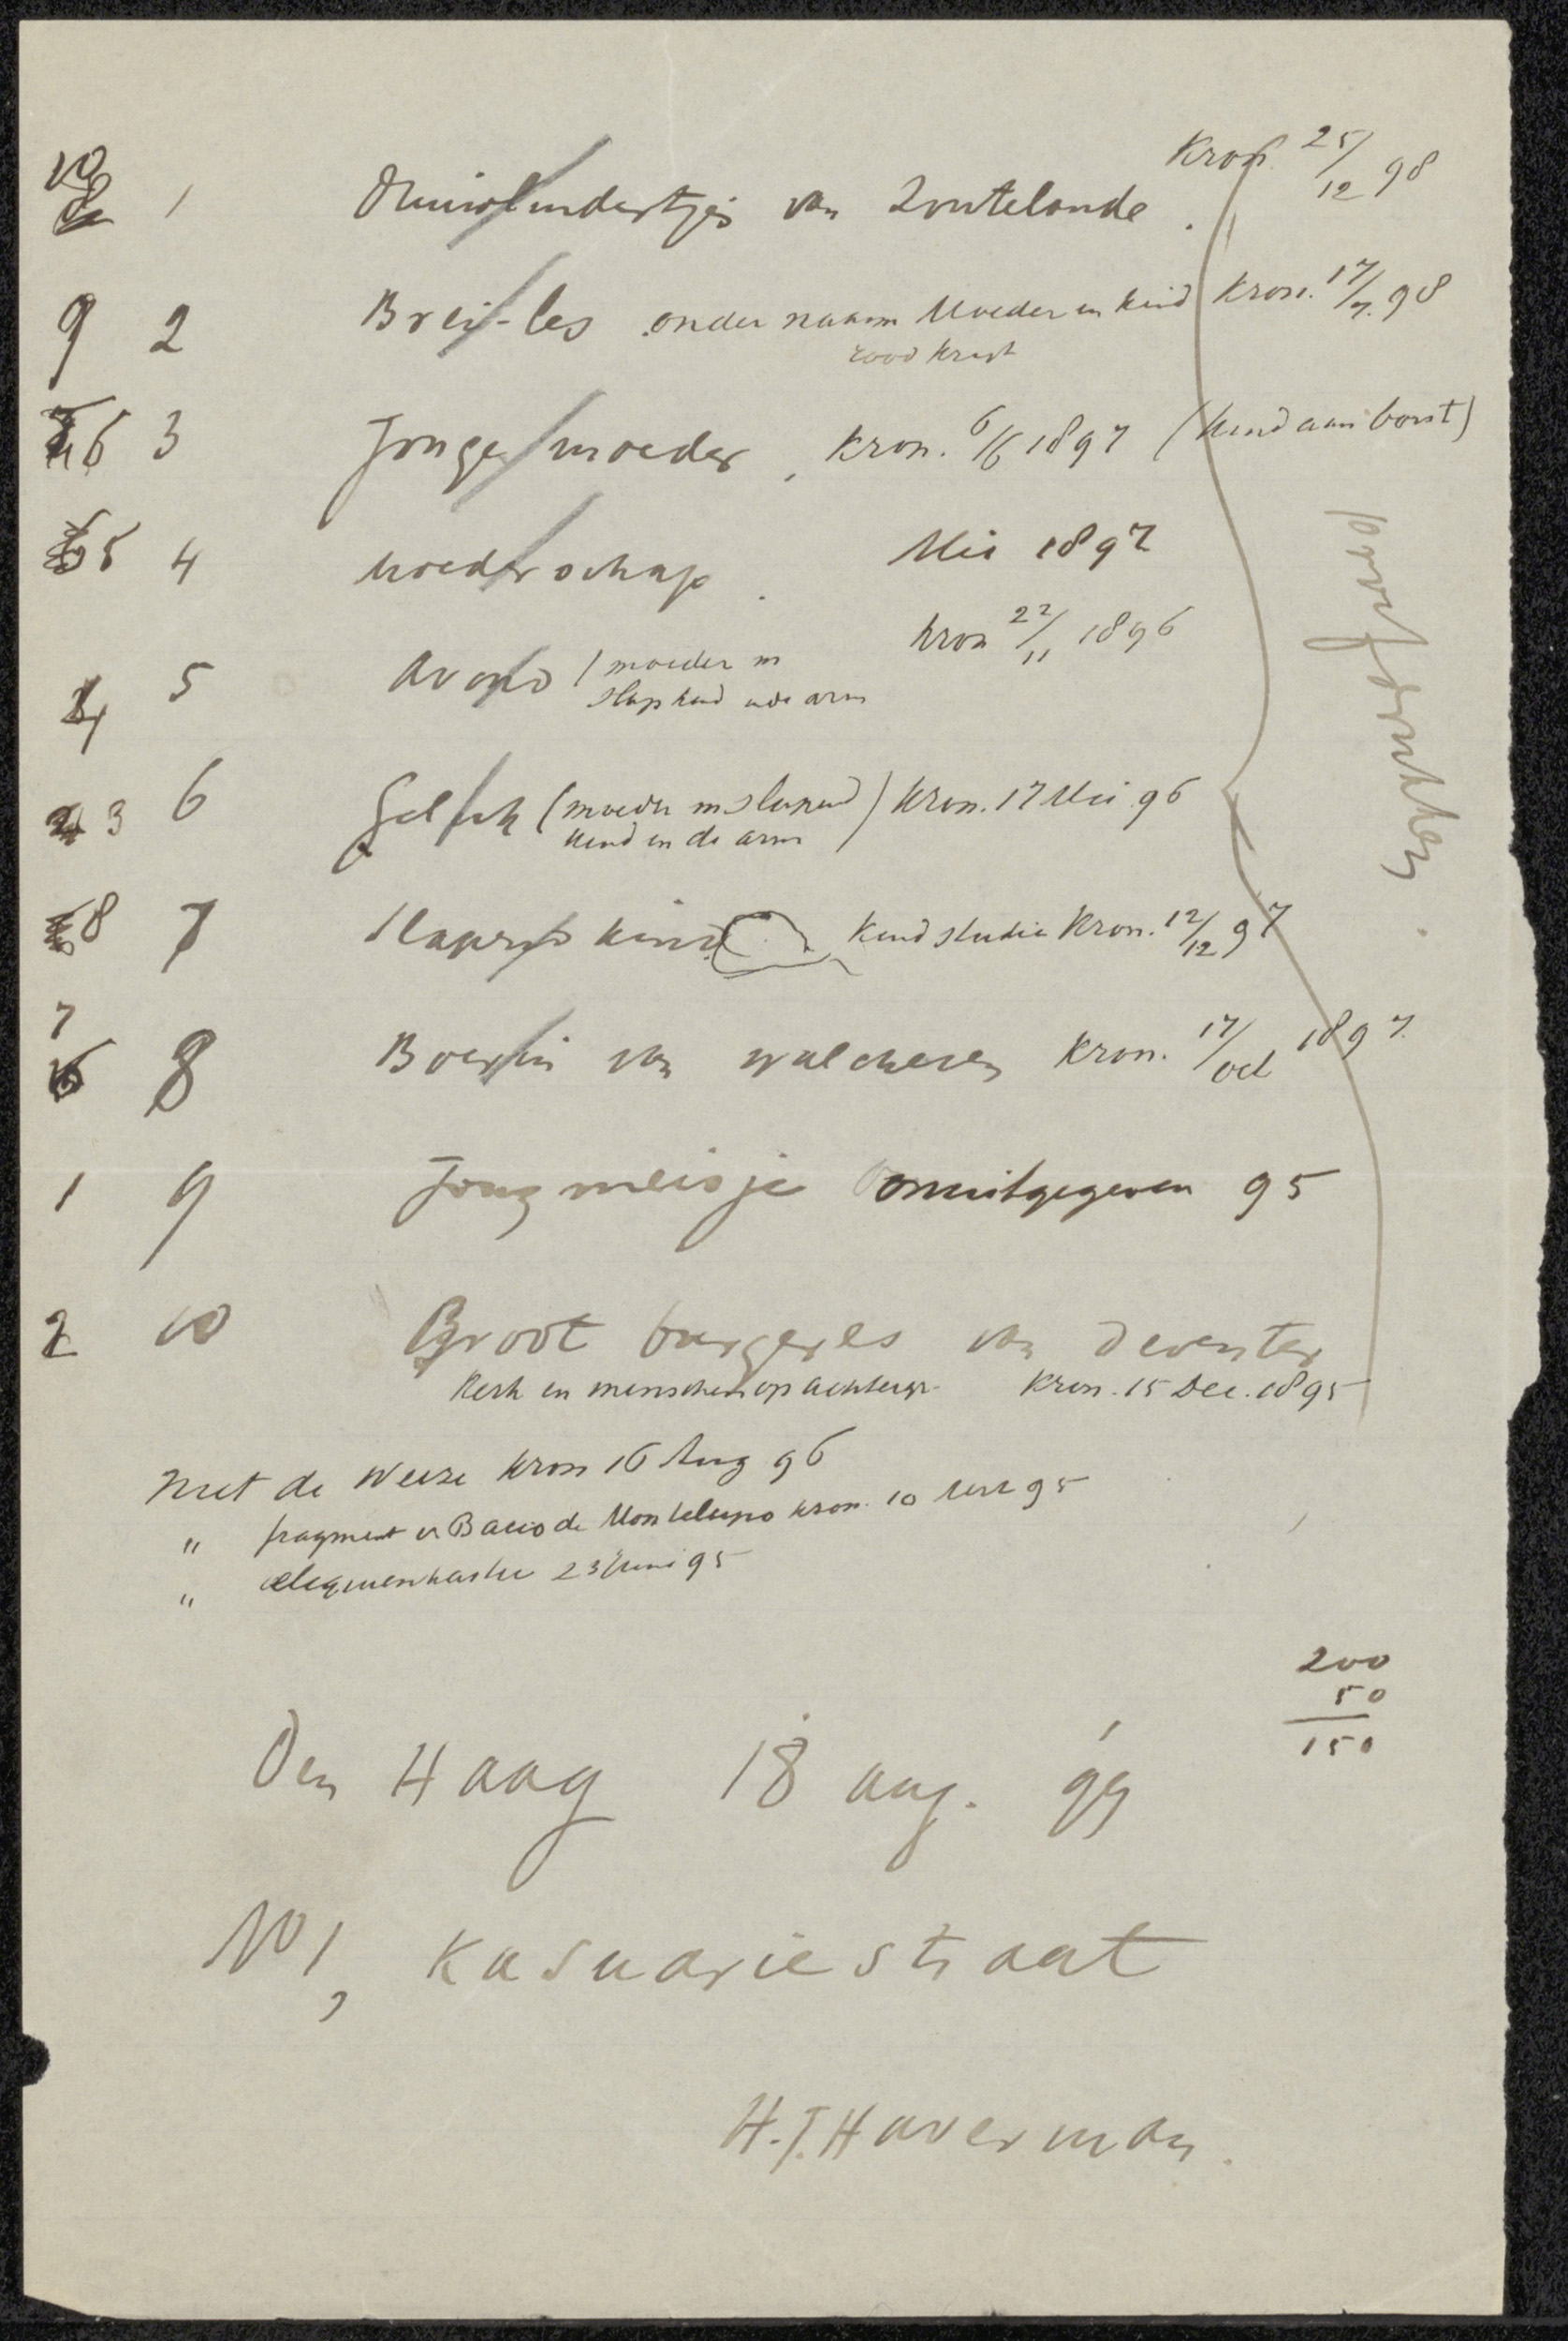 10 1 Duinkindertjes van Zoutelande. Kron. 25/12 98
9 2 Brei-les onder naam Moeder en kind Kron. 17/7. 98
rood krijt
6 3 Jonge moeder, Kron. 6/6 1897 (kind aan borst)
5 4 moederschap. Mei 1897
4 5 Avond (moeder m Kron 22/11 1896
slap kind in de arm
3 6 Geluk (moeder m slapend) Kron. 17 Mei 96
kind in de arm
8 7 Slapend kind Kindstudie Kron. 12/12 97
7
8 Boerin van Walcheren Kron. 17/Oct 1897.
1 9 Jong meisje onuitgegeven 95
2 10 Groot burgeres van Deventer
Kerk en menschen op achtergr. Kron. 15 Dec. 1895
proefdrukken
Niet de Weeze Kron 16 Aug 96
" fragment v Bacio de Montelupo Kron. 10 95
" 23 Juni 95
200
50
150
Den Haag 18 aug. 99
No 1, Kasuariestraat
H.J. Haverman.